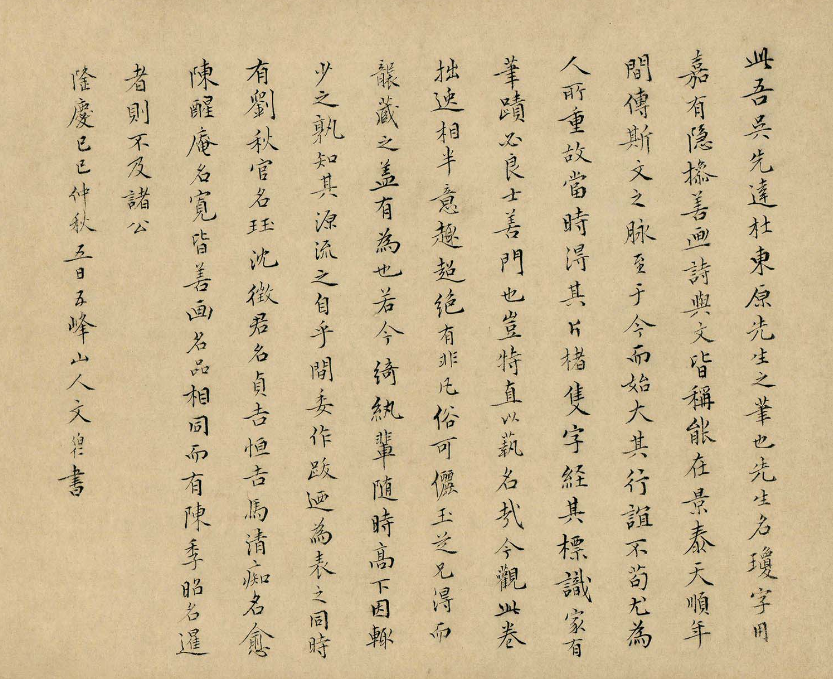 此吾吳先達杜東原先生之筆也先生名瓊字用
嘉有隱操善画詩與文皆稱能在景泰天順年
間傳斯文之脉至于今而始大其行誼不苟尤為
人所重故當時得其片楮隻字経其標識家有
筆蹟必良士善門也豈特直以藝名哉今觀此卷
拙逸相半意趣超絶有非凡俗可儷玉芝兄得而
襲藏之盖有為也若今綺紈輩随時高下因輙
少之孰知其源流之自乎間委作跋迺為表之同時
有劉秋官名珏沈徵君名貞吉恒吉馬清痴名愈
陳醒庵名寛皆善画名品相同而有陳季昭名暹
者則不及諸公
隆慶己巳仲秋五日五峰山人文伯仁書